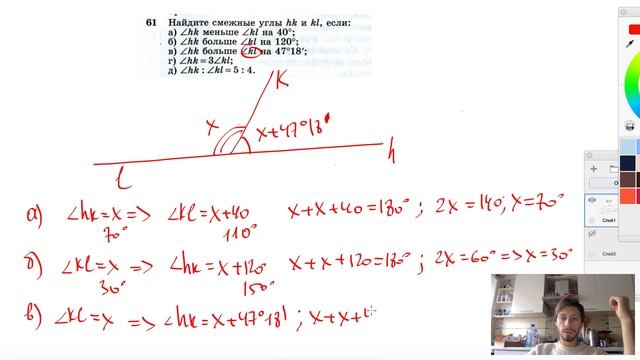 61 Найдите смежные углы hk и kl, если:
а) ∠hk меньше ∠kl на 40°;
б) ∠hk больше ∠kl на 120°;
в) ∠hk больше ∠kl на 47°18′;
г) ∠hk = 3∠kl;
д) ∠hk : ∠kl = 5 : 4.
K
x x+47°18'
l h
а) ∠hk=x => ∠kl=x+40 x+x+40=180°; 2x=140; x=70°
70° 110°
б) ∠kl=x => ∠hk=x+120 x+x+120=180°; 2x=60° => x=30°
30° 150°
в) ∠kl=x => ∠hk=x+47°18'; x+x+
Слой1
Слой3